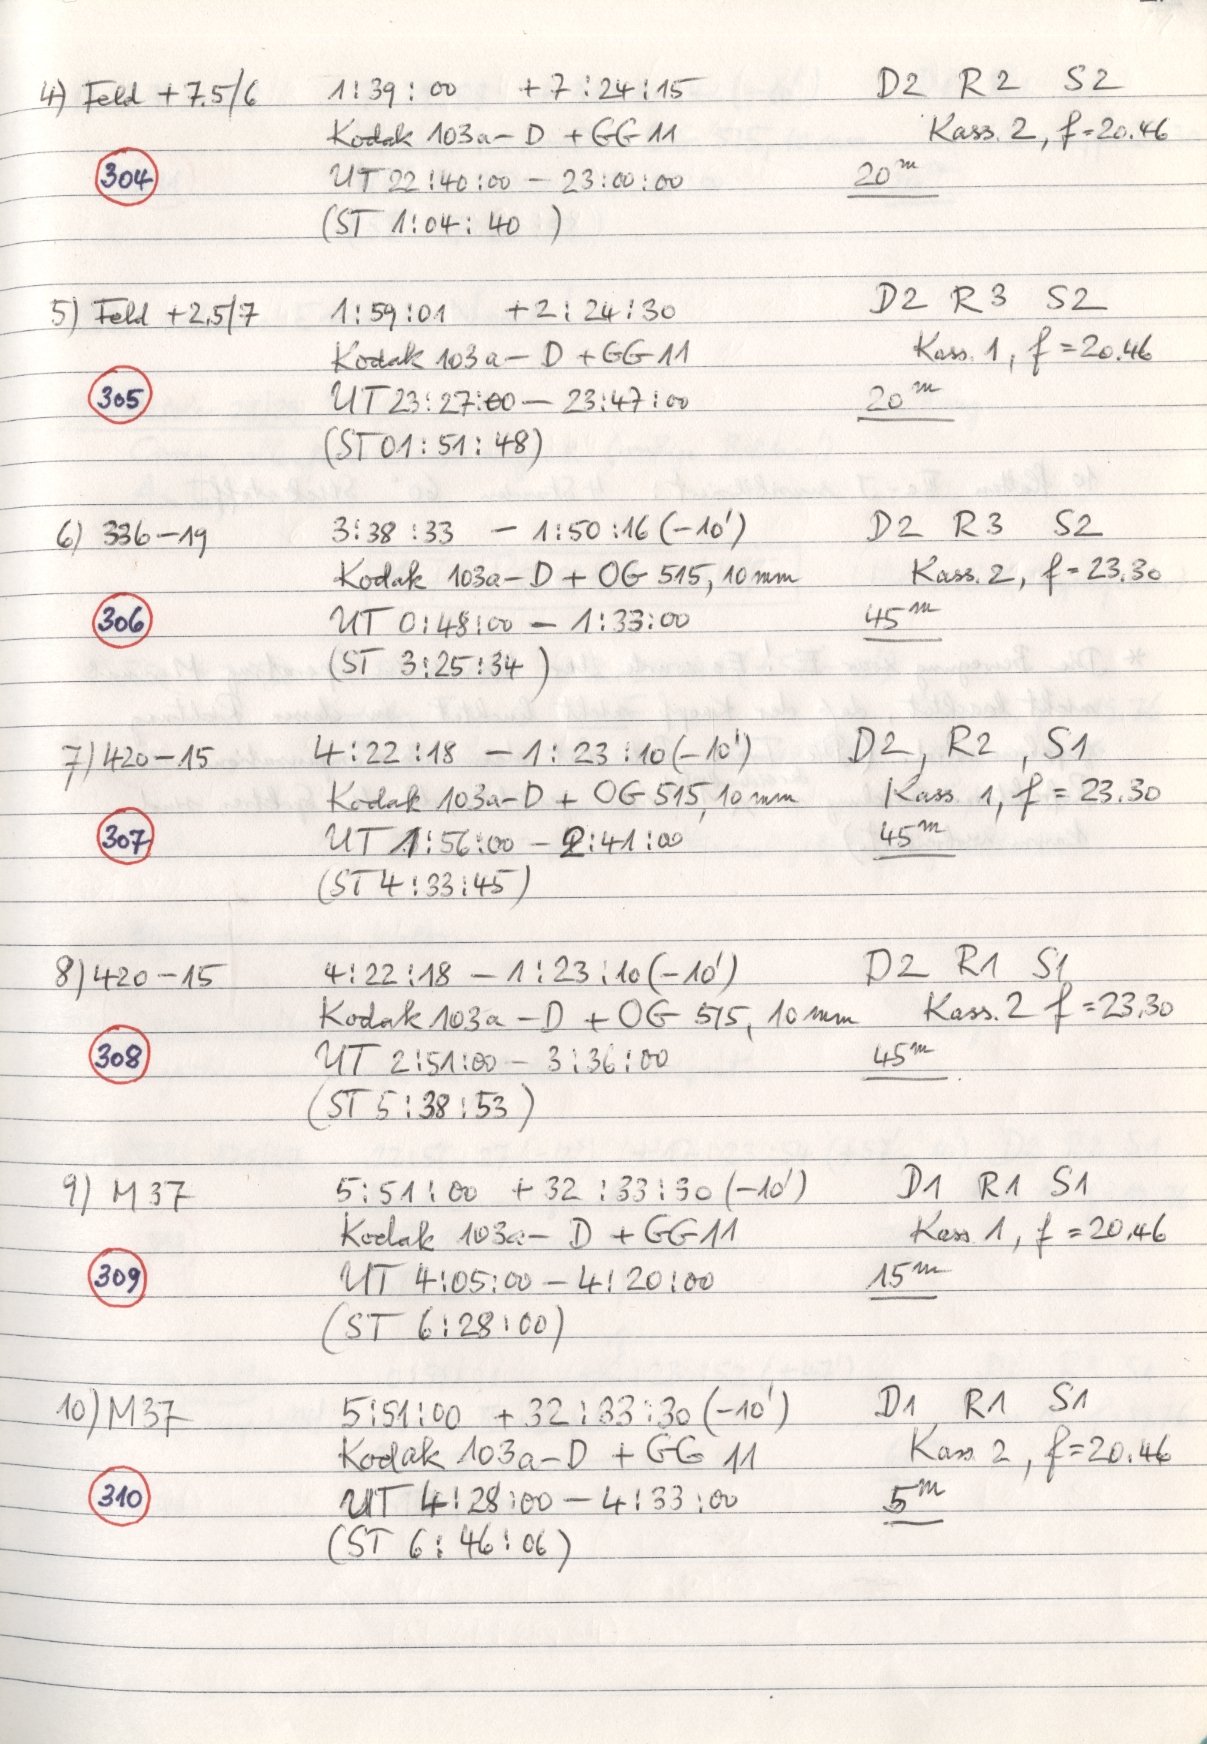 4) Feld +7.5/6 1:39:00 +7:24:15 D2 R2 S2
Kodak 103a-D + GG 11 Kass. 2, f=20.46
304 UT 22:40:00 - 23:00:00 20m
(ST 1:04:40 )
5) Feld +2.5/7 1:59:01 +2:24:30 D2 R3 S2
Kodak 103a-D + GG 11 Kass. 1, f=20.46
305 UT 23:27:00 - 23:47:00 20m
(ST 01:51:48)
6) 336-19 3:38:33 -1:50:16 (-10') D2 R3 S2
Kodak 103a-D + OG 515, 10 mm Kass. 2, f=23.30
306 UT 0:48:00 - 1:33:00 45m
(ST 3:25:34 )
7) 420-15 4:22:18 -1:23:10 (-10') D2, R2, S1
Kodak 103a-D + OG 515, 10 mm Kass. 1, f=23.30
307 UT 1:56:00 - 2:41:00 45m
(ST 4:33:45)
8) 420-15 4:22:18 -1:23:10 (-10') D2 R1 S1
Kodak 103a-D + OG 515, 10 mm Kass. 2 f=23.30
308 UT 2:51:00 - 3:36:00 45m
(ST 5:38:53 )
9) M 37 5:51:00 +32:33:30 (-10') D1 R1 S1
Kodak 103a-D + GG 11 Kass. 1, f=20.46
309 UT 4:05:00 - 4:20:00 15m
(ST 6:28:00)
10) M 37 5:51:00 +32:33:30 (-10') D1 R1 S1
Kodak 103a-D + GG 11 Kass 2, f=20.46
310 UT 4:28:00 - 4:33:00 5m
(ST 6:46:06 )